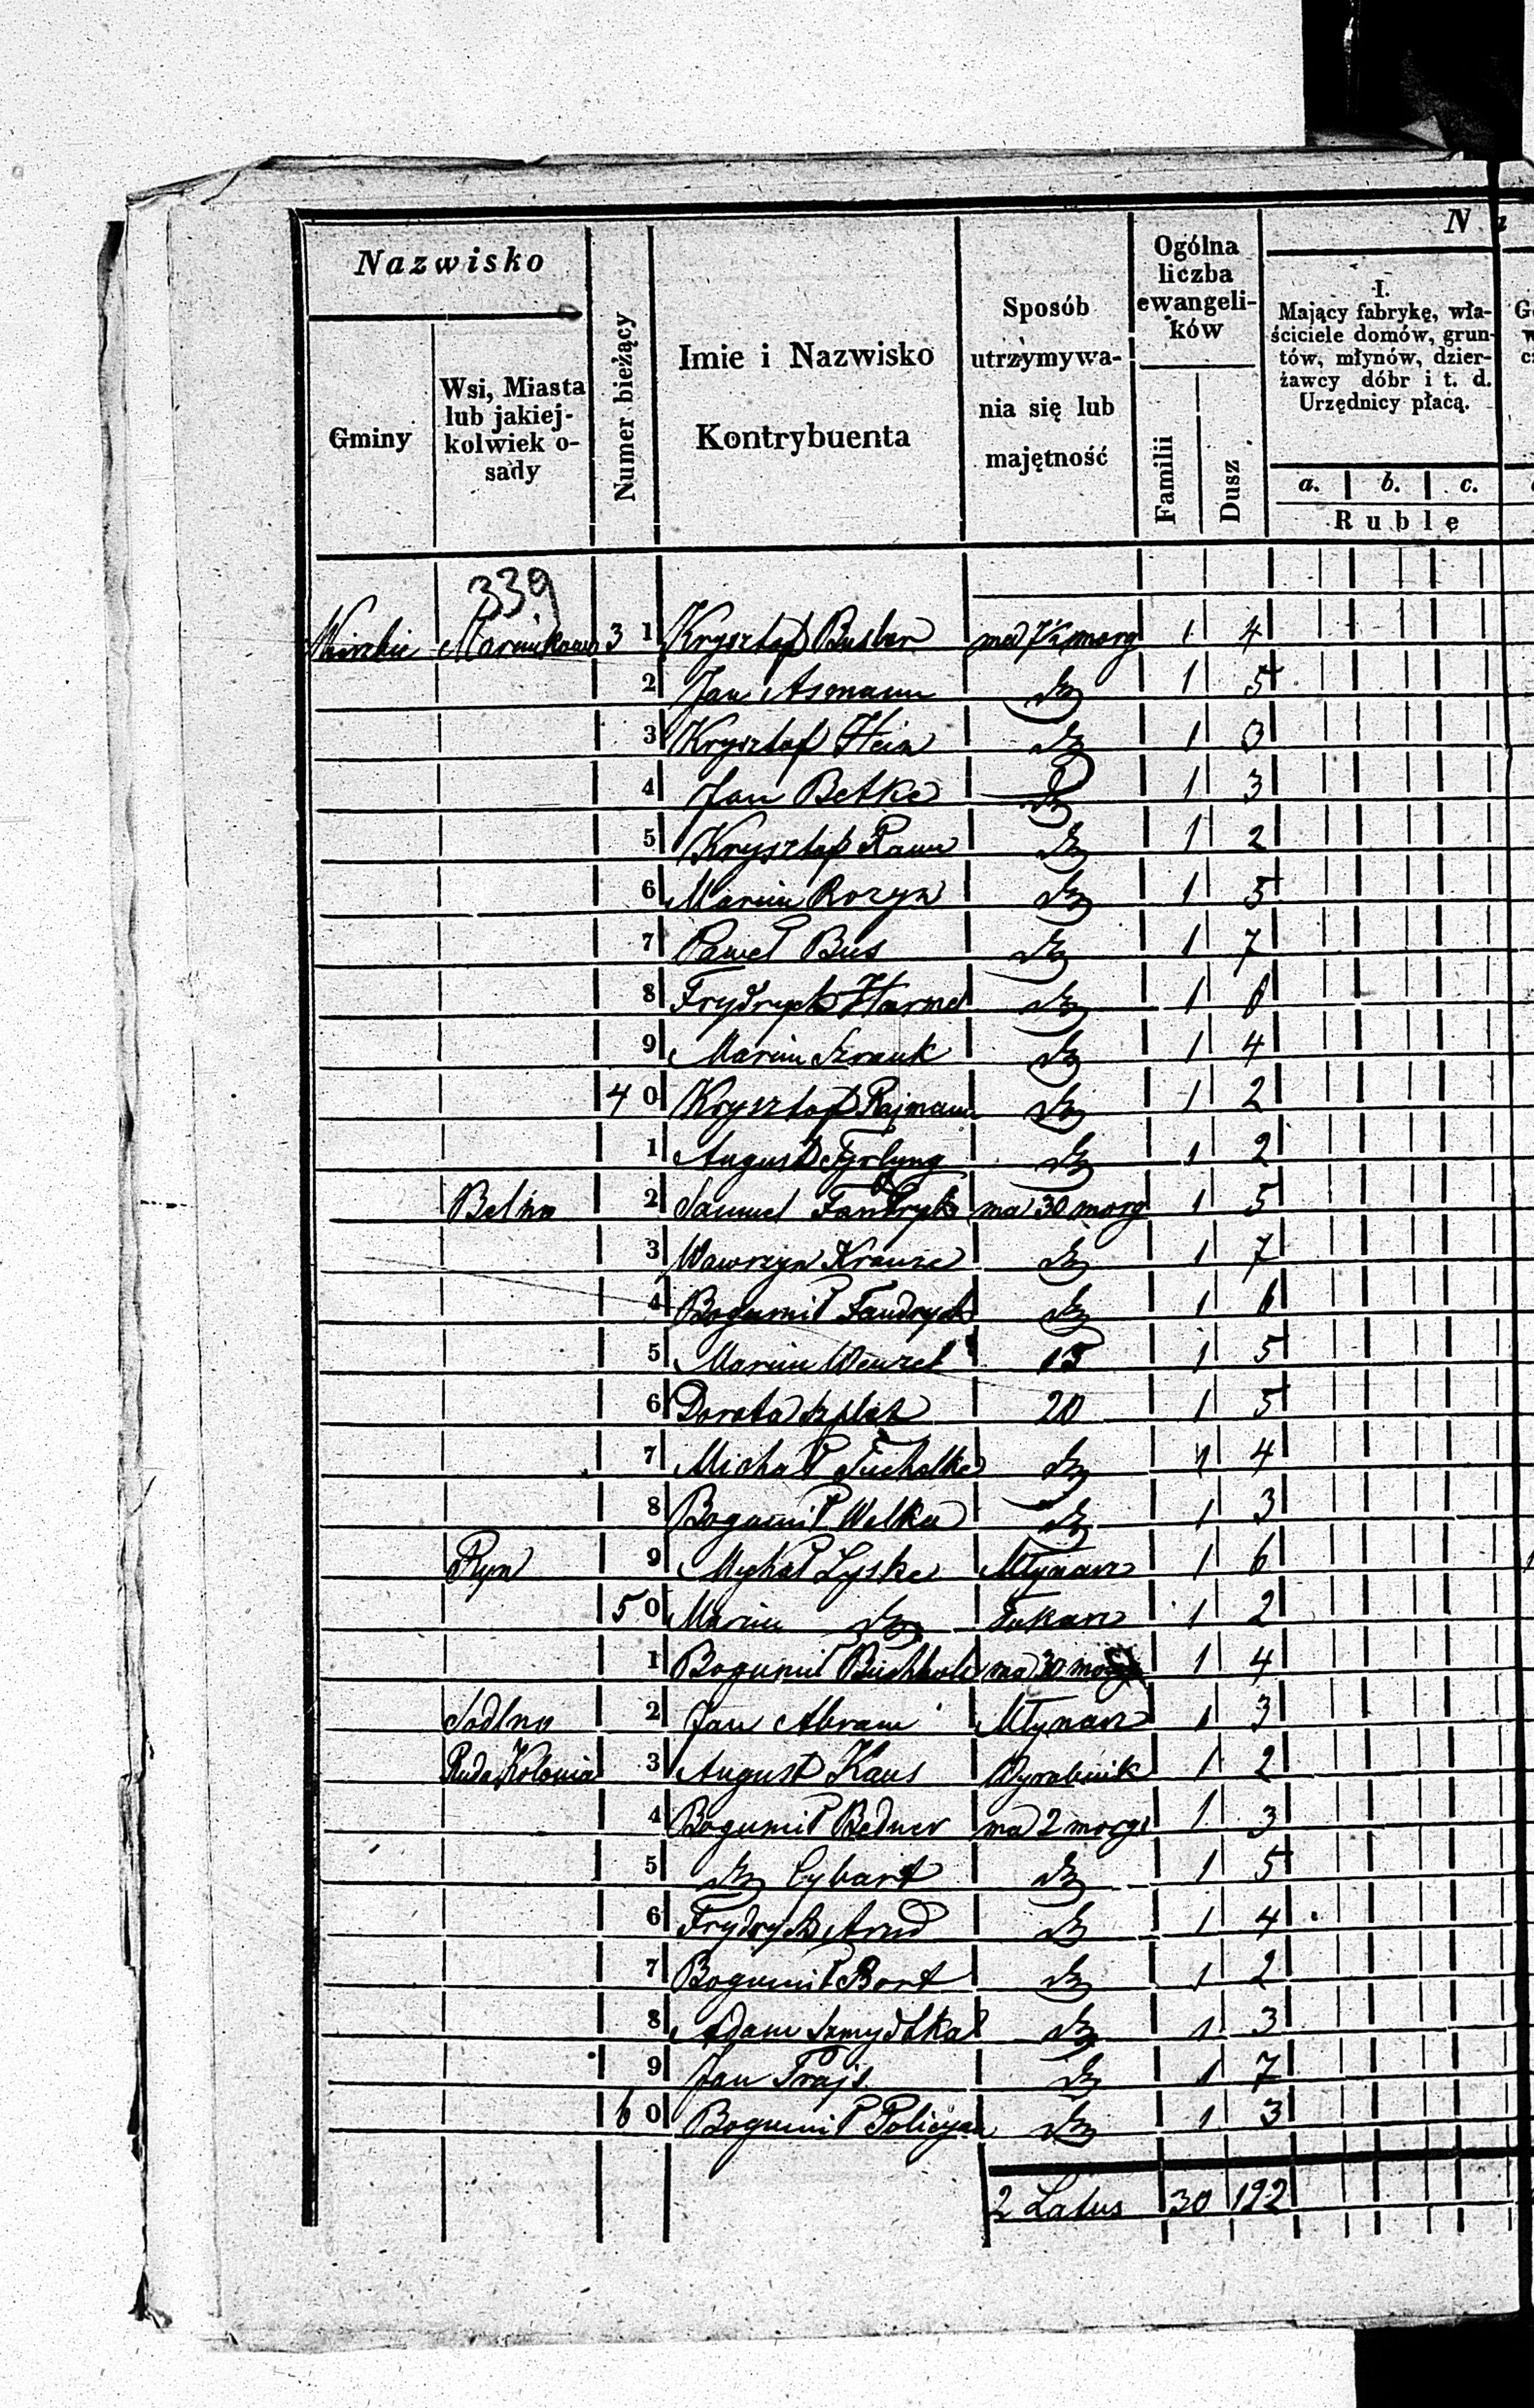 Nazwisko
Gminy
Wsi, Miasta lub jakiej-kolwiek o-sady
Numer bieżący
Imie i Nazwisko
Kontrybuenta
Sposób utrzymywa-nia się lub majętność
Ogólna liczba ewangeli-ków
Familii
Dusz
N
I.
Mający fabrykę, wła-
ściciele domów, grun-
tów, młynów, dzier-
żawcy dóbr i t. d.
Urzędnicy płacą.
a. b. c.
Ruble
339
31 Krysztof ma 7½ morg 1 4
2 Jan Asmann dto 1 5
3 Krysztof Hein dto 1 3
4 Jan Betke dto 1 3
5 Krysztof Rann dto 1 2
6 Marcin Rozyn dto 1 5
7 Paweł Bus dto 1 7
8 Frydrych dto 1 6
9 Marcin Szrank dto 1 4
40 Krysztof Rajmann dto 1 2
1 August dto 1 2
Belno 2 Samuel Fandrych ma 30 morg 1 5
3 Wawrzyn Krauze dto 1 7
4 Bogumił Fandrych dto 1 6
5 Marcin Wenzel 15 1 5
6 Dorota 20 1 5
7 Michał Tuchelke dto 1 4
8 Bogumił Welke dto 1 3
Ryn 9 Mychał Lyske Młynarz 1 6
50 Marcin dto 1 2
1 Bogumił Buchholc ma 30 morg 1 4
Sodlno 2 Jan Abram Młynarz 1 3
Ruda Kolonia 3 August Kaus Wyrobnik 1 2
4 Bogumił Bedner ma 2 morgi 1 3
5 dto Cybart dto 1 5
6 Frydrych Arnd dto 1 4
7 Bogumił Bort dto 1 2
8 Adam Szmydtka dto 1 3
9 Jan Trajs dto 1 7
60 Bogumił dto 1 3
2 Latus 30 122